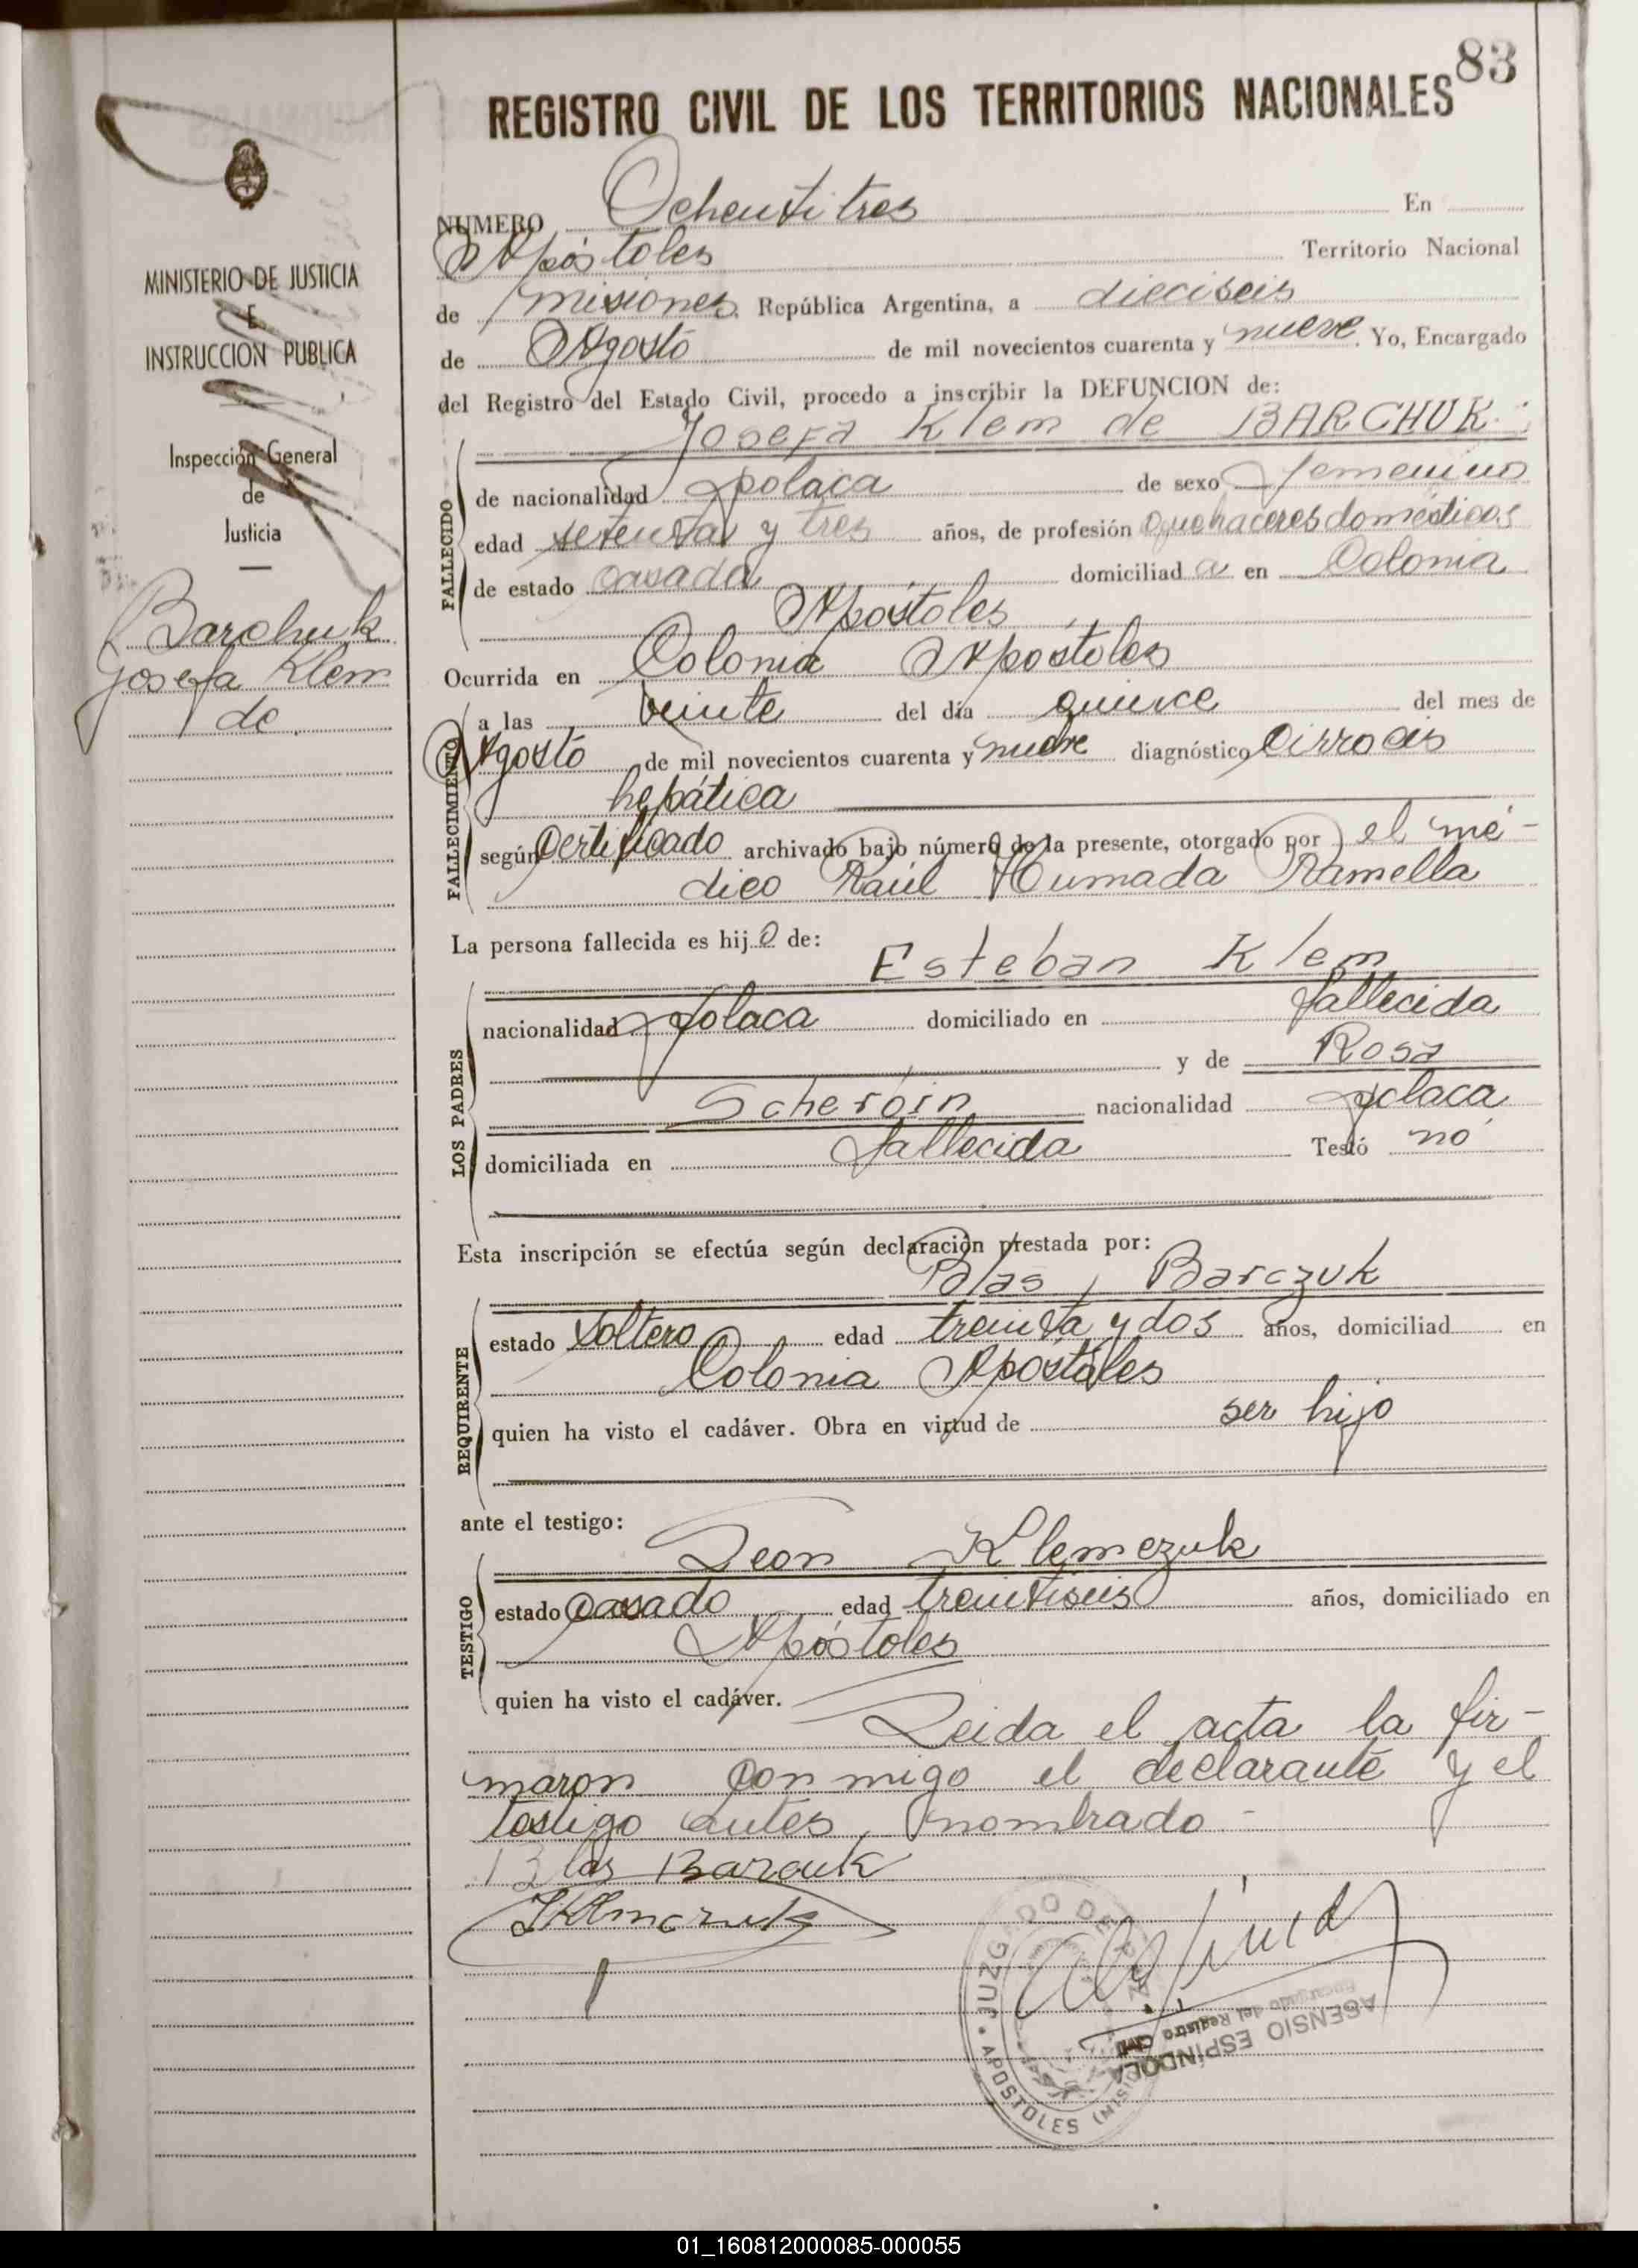 83
REGISTRO CIVIL DE LOS TERRITORIOS NACIONALES
MINISTERIO DE JUSTICIA
E
INSTRUCCION PUBLICA
Inspección General
de
Justicia
Barchuk
Josefa Klem
de
NUMERO Ochentitres En
Apóstoles Territorio Nacional
de Misiones, República Argentina, a dieciseis
de Agosto de mil novecientos cuarenta y nueve. Yo, Encargado
del Registro del Estado Civil, procedo a inscribir la DEFUNCION de:
Josefa Klem de BARCHUK
FALLECIDO
de nacionalidad polaca de sexo femenino
edad setenta y tres años, de profesión quehaceres domésticos
de estado casada domiciliad a en Colonia
Apóstoles
Ocurrida en Colonia Apóstoles
FALLECIMIENTO
a las veinte del día quince del mes de
Agosto de mil novecientos cuarenta y nueve diagnóstico Cirrocis
hepática
según Certificado archivado bajo número de la presente, otorgado por el mé-
dico Raúl Humada Ramella
La persona fallecida es hij a de:
Esteban Klem
LOS PADRES
nacionalidad polaca domiciliado en fallecida
y de Rosa
Scheroin nacionalidad polaca
domiciliada en fallecida Testó no
Esta inscripción se efectúa según declaración prestada por:
Blas Barczuk
REQUIRENTE
estado soltero edad treinta y dos años, domiciliad en
Colonia Apóstoles
quien ha visto el cadáver. Obra en virtud de ser hijo
ante el testigo:
Leon Klemczuk
TESTIGO
estado casado edad treintiseis años, domiciliado en
Apóstoles
quien ha visto el cadáver.
Leida el acta la fir-
maron conmigo el declarante y el
testigo antes nombrado -
Blas Barcuk
Klemczuk
JUZGADO DE PAZ
APOSTOLES (MISIONES)
ASENSIO ESPÍNDOLA
Encargado del Registro Civil
01_160812000085-000055